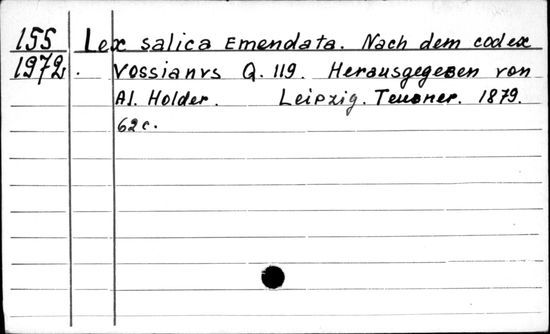 155 Lex salica Emendata. Nach dem codex
1972. Vossianvs Q. 119. Herausgegeben von
Al. Holder. Leipzig. Teubner. 1879.
62c.